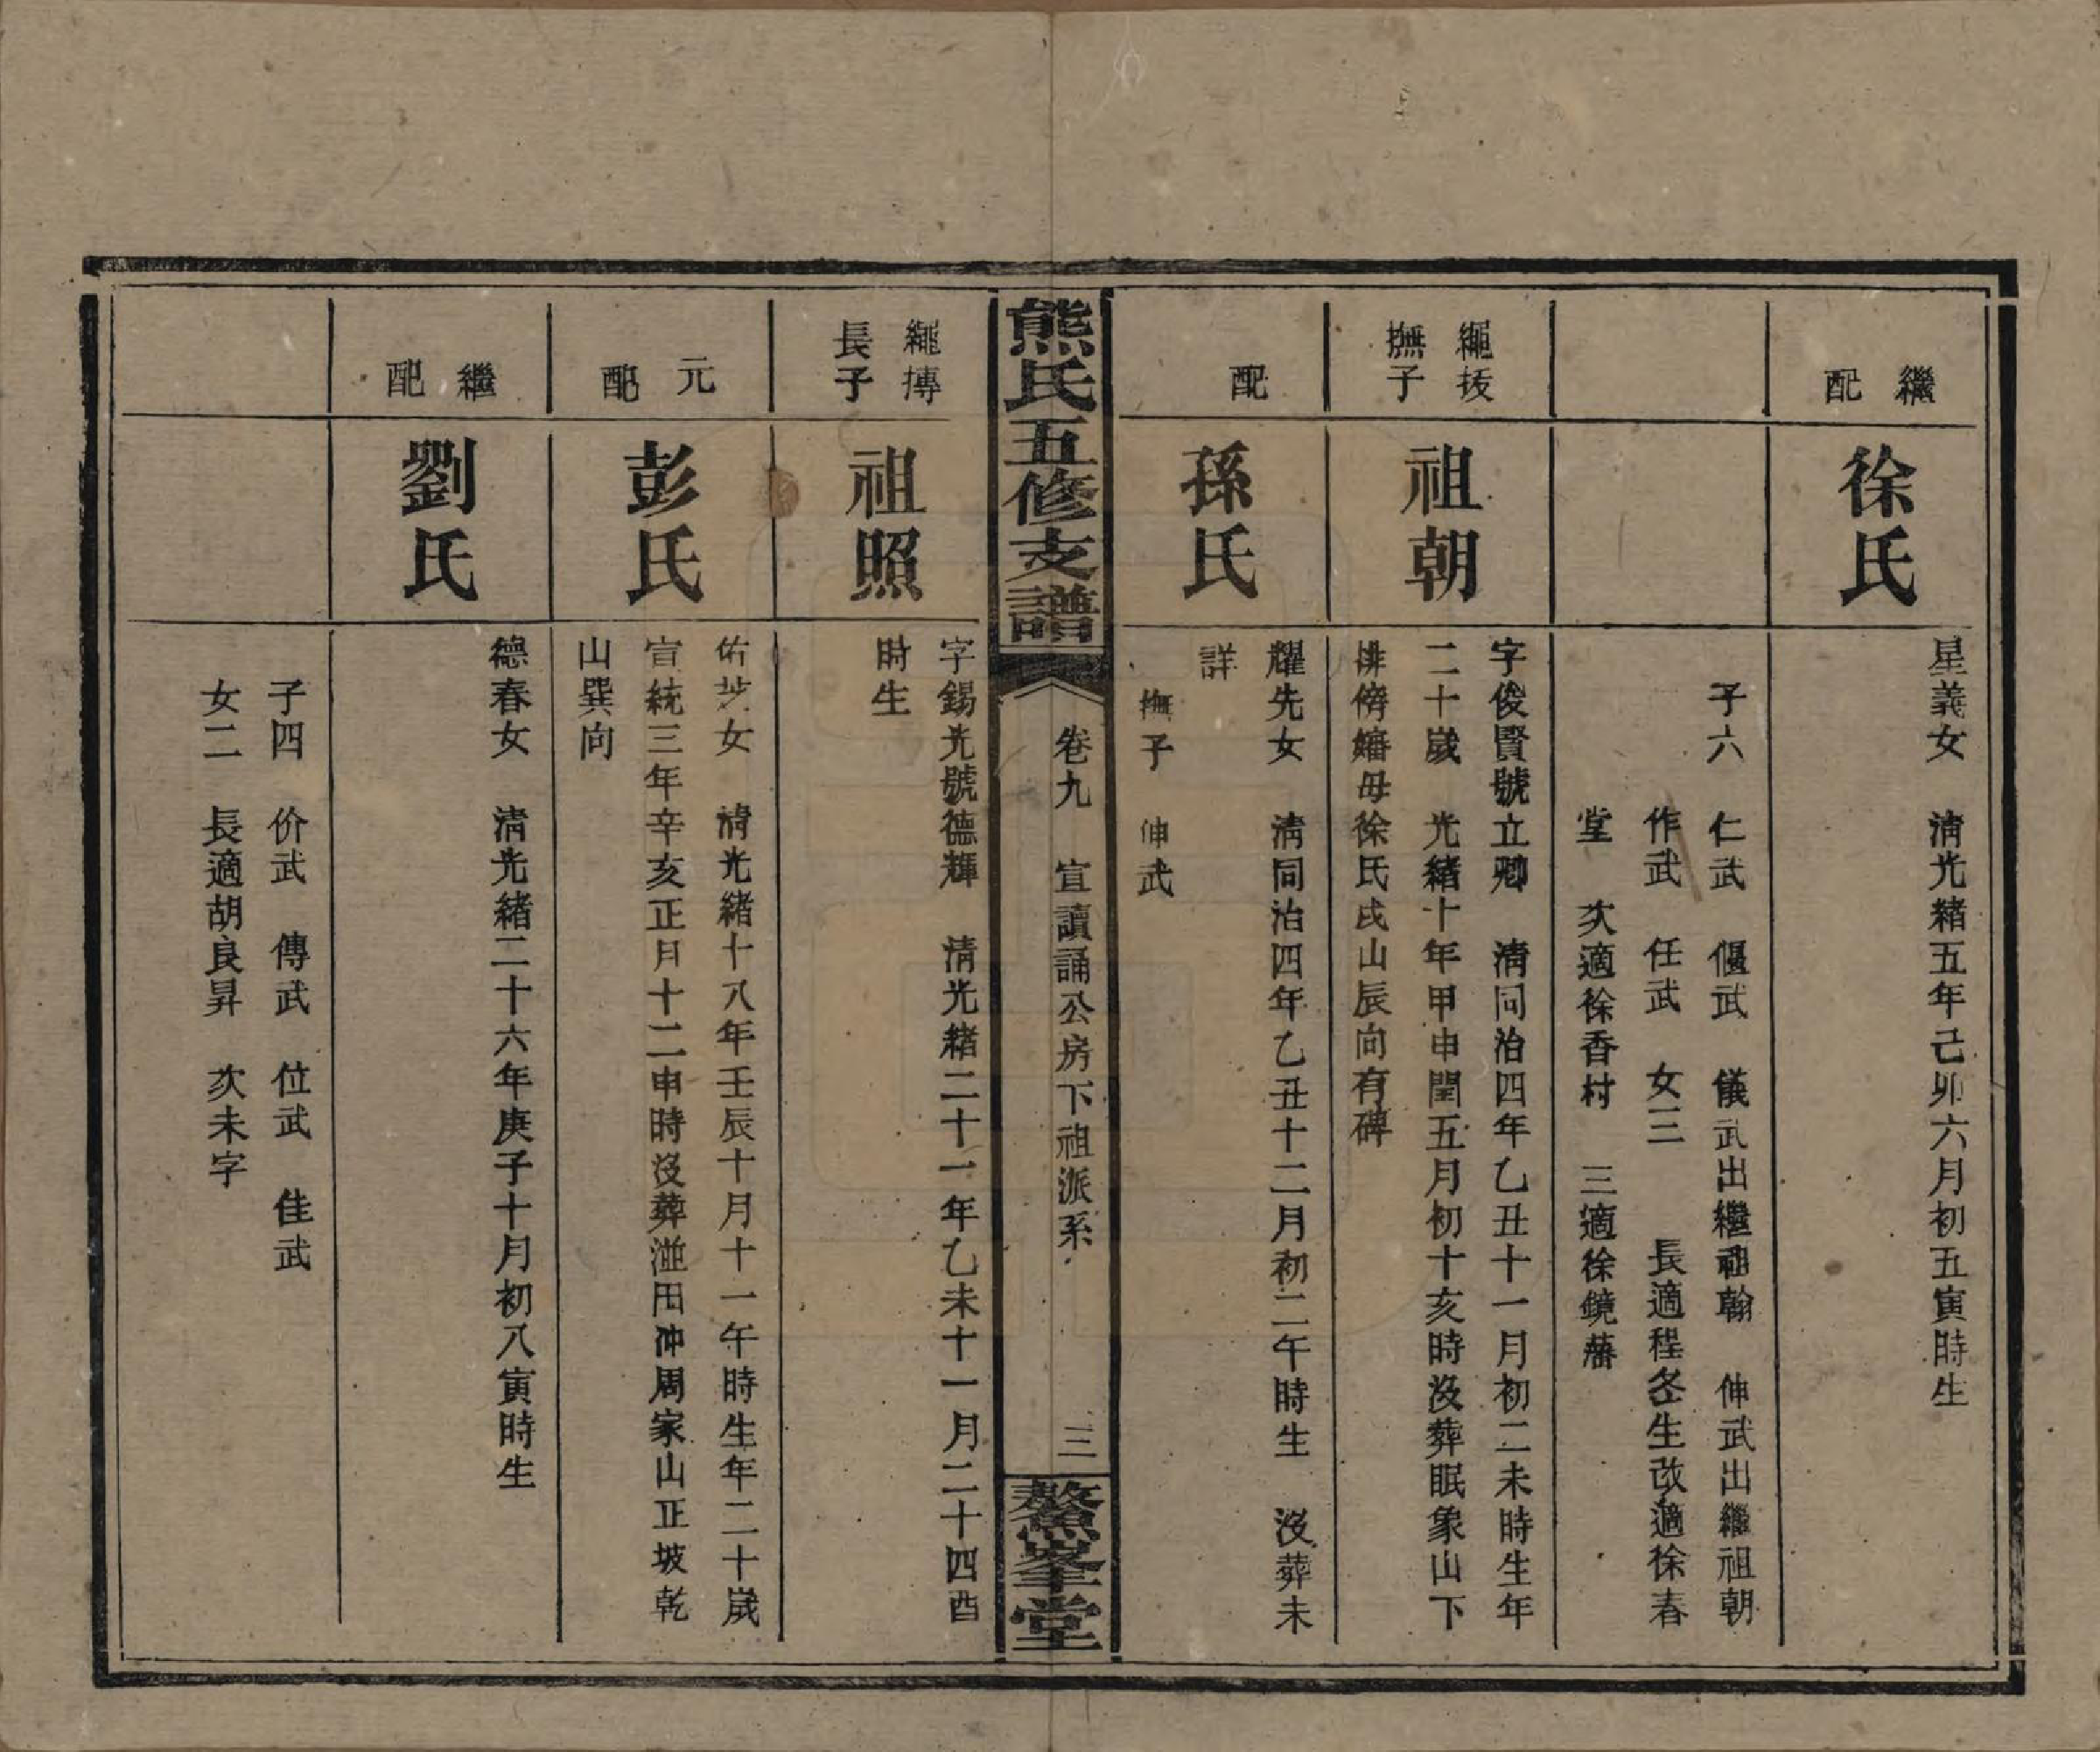 繼
配
徐氏
星義女　清光緒五年己卯六月初五寅時生
子六　仁武　偃武　儀武出繼祖翰　伸武出繼祖朝
作武　任武　女三　長適程冬生改適徐春
堂　次適徐香村　三適徐鏡藩
繩拔
撫子
祖朝
字俊賢號立卿　清同治四年乙丑十一月初二未時生年
二十歲　光緒十年甲申閏五月初十亥時沒葬眠象山下
排傍嬸母徐氏戌山辰向有碑
配
孫氏
耀先女　清同治四年乙丑十二月初二午時生　沒葬未
詳
撫子　伸武
熊氏五修支譜
卷九　宣讀誦公房下祖派系
三
鰲峯堂
繩摶
長子
祖照
字錫光號德輝　清光緒二十一年乙未十一月二十四酉
時生
元
配
彭氏
佑芝女　清光緒十八年壬辰十月十一午時生年二十歲
宣統三年辛亥正月十二申時沒葬湴田沖周家山正坡乾
山巽向
繼
配
劉氏
德春女　清光緒二十六年庚子十月初八寅時生
子四　价武　傳武　位武　佳武
女二　長適胡良昇　次未字